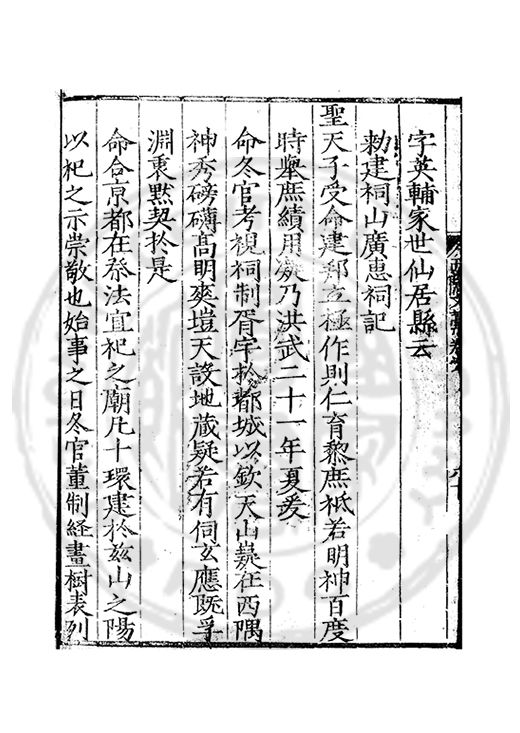 字英輔家世仙居縣云
勑建祠山廣惠祠記
聖天子受命建邦立極作則仁育黎庶祗若明神百度
時舉庶績用凝乃洪武二十一年夏爰
命冬官考視祠制胥宇於都城以欽天山嶷在西隅
神秀磅礴髙明爽塏天設地藏疑若有伺玄應旣孚
淵衷默契於是
命合京都在祭法宜祀之廟凡十環建於玆山之陽
以祀之示崇敬也始事之日冬官董制経畫樹表列